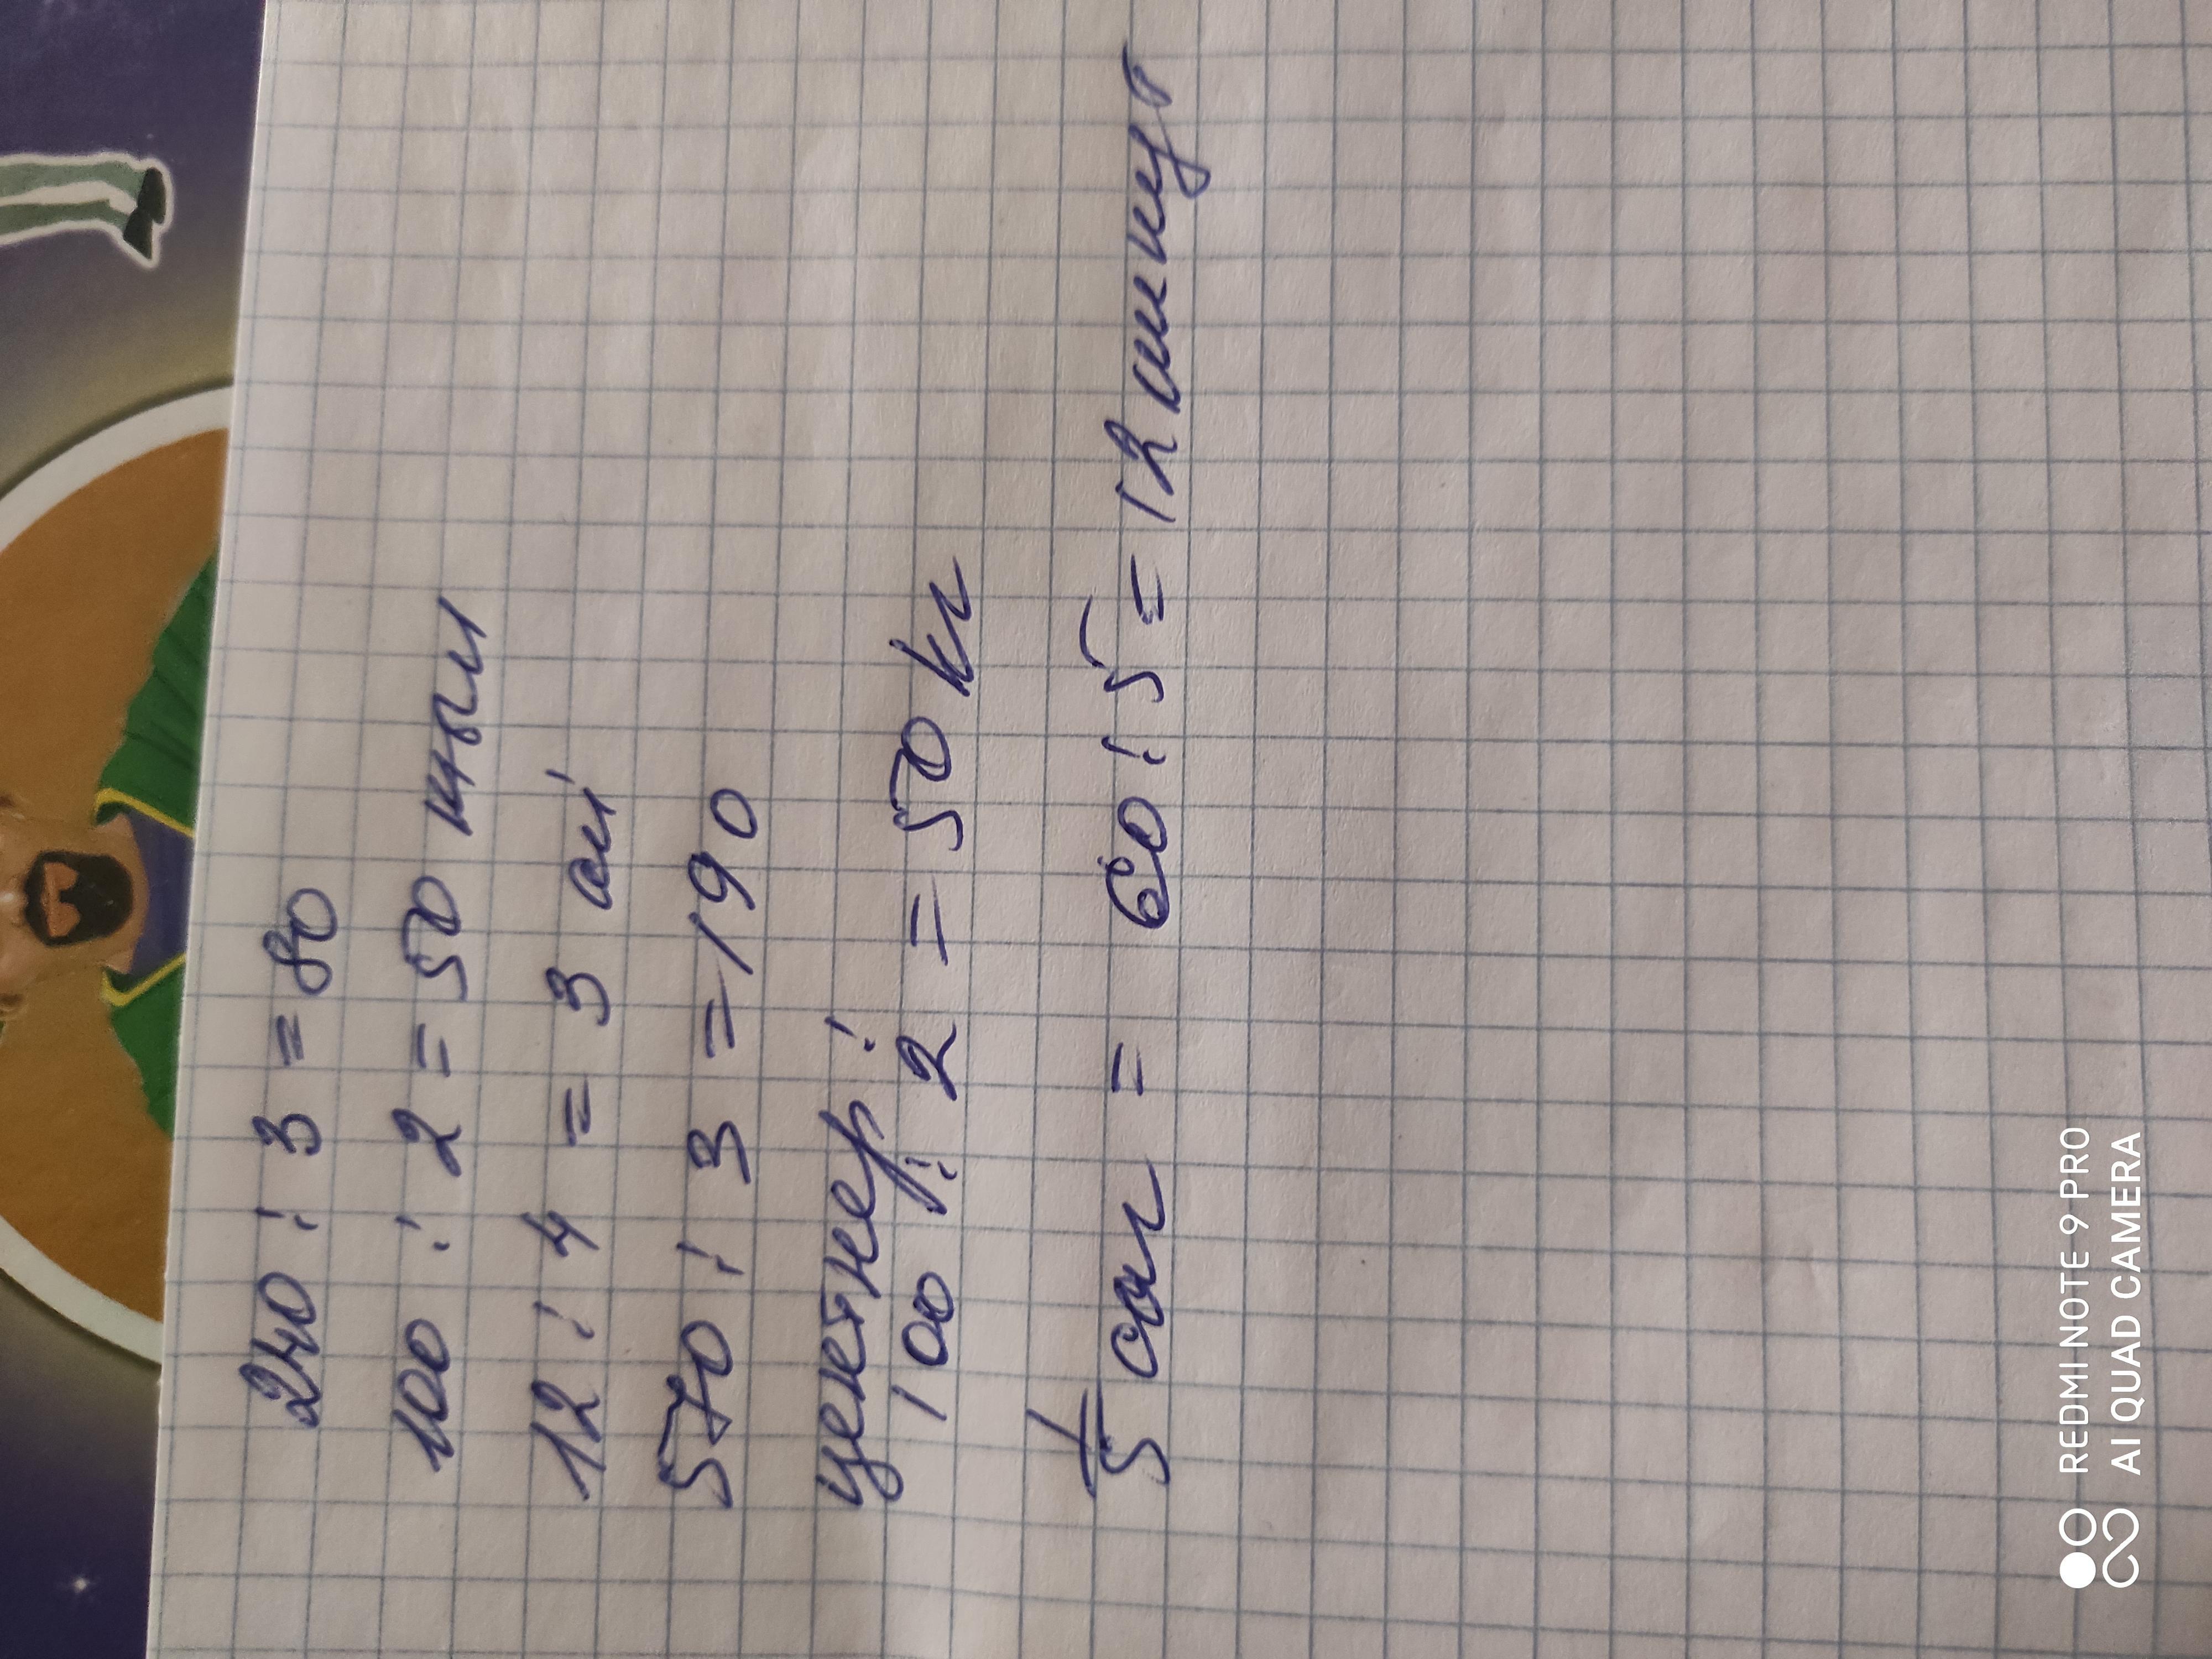 240 : 3 = 80
100 : 2 = 50 жыл
12 : 4 = 3 ай
570 : 3 = 190
центнер:
100 : 2 = 50 кг
1/5 сағ = 60 : 5 = 12 минут
REDMI NOTE 9 PRO
AI QUAD CAMERA